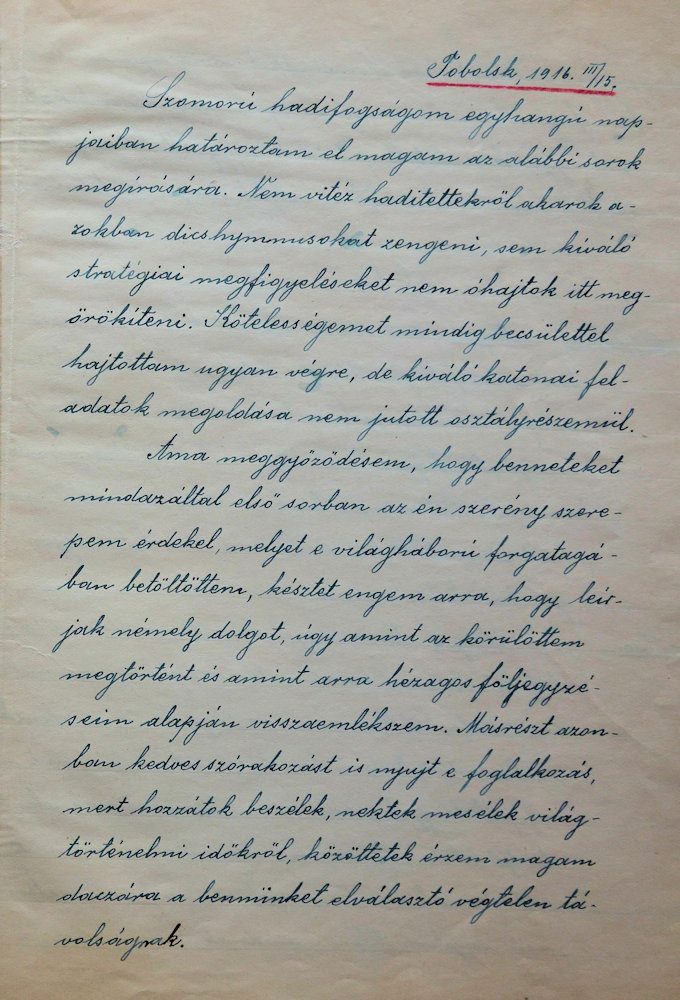 Tobolsk, 1916. III/15.
Szomorú hadifogságom egyhangú nap-
jaiban határoztam el magam az alábbi sorok
megírására. Nem vitéz haditettekről akarok a-
zokban dicshymnusokat zengeni, sem kiváló
stratégiai megfigyeléseket nem óhajtok itt meg-
örökíteni. Kötelességemet mindig becsülettel
hajtottam ugyan végre, de kiváló katonai fel-
adatok megoldása nem jutott osztályrészemül.
Ama meggyőződésem, hogy benneteket
mindazáltal első sorban az én szerény szere-
pem érdekel, melyet e világháború forgatagá-
ban betöltöttem, késztet engem arra, hogy leír-
jak némely dolgot, úgy amint az körülöttem
megtörtént és amint arra hézagos följegyzé-
seim alapján visszaemlékszem. Másrészt azon-
ban kedves szórakozást is nyujt e foglalkozás,
mert hozzátok beszélek, nektek mesélek világ-
történelmi időkről, közöttetek érzem magam
daczára a bennünket elválasztó végtelen tá-
volságnak.